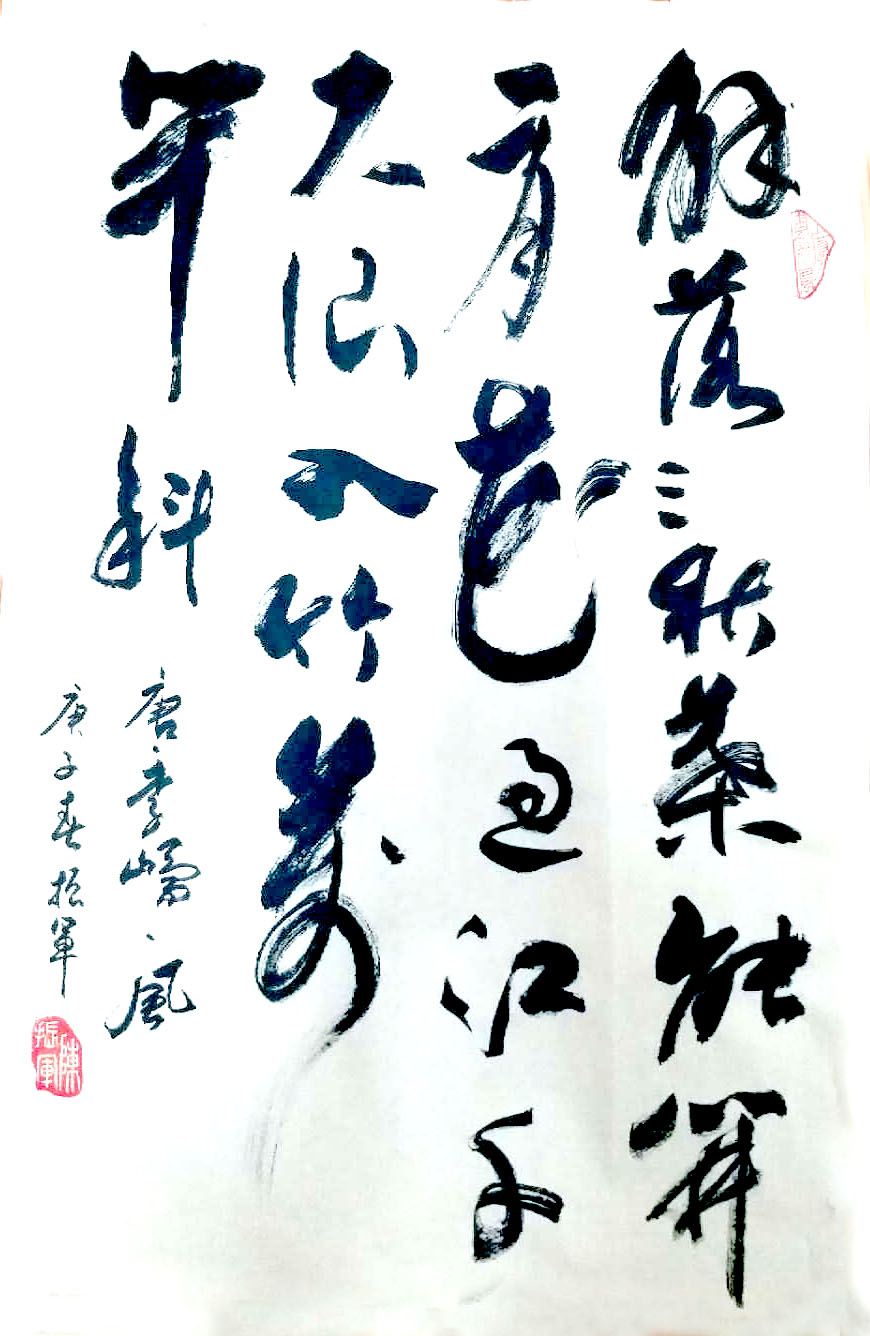 解落三秋葉能開
二月花過江千
尺浪入竹萬
竿斜
唐、李嶠、風
庚子春振軍
陳振軍